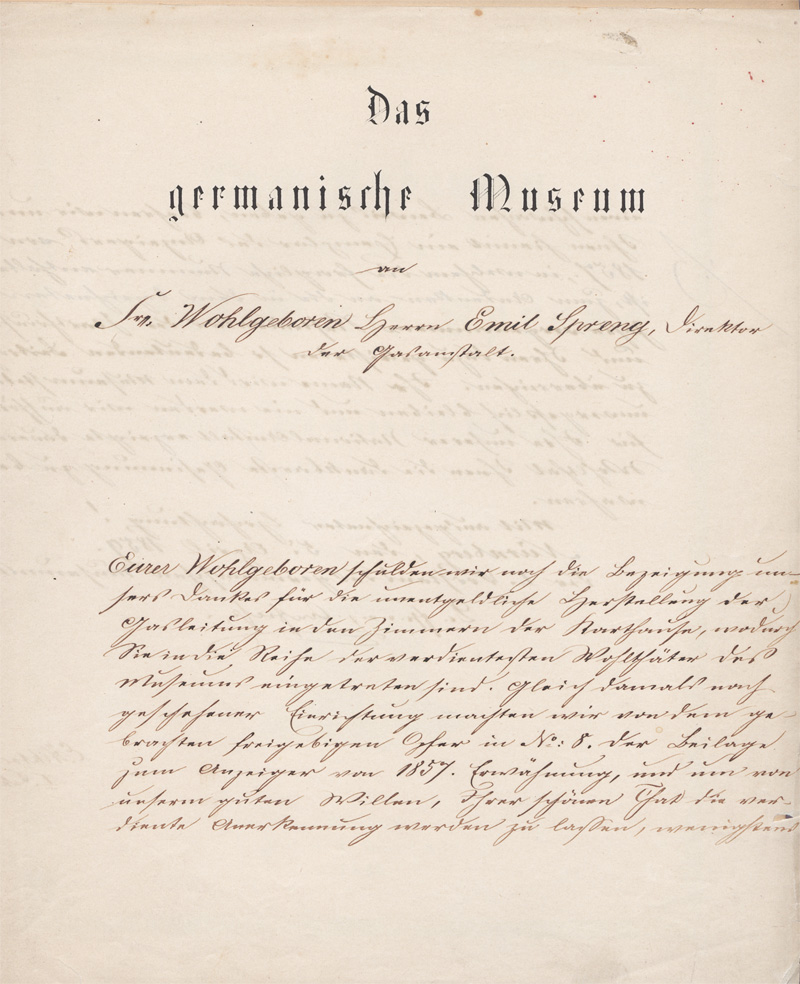 Das
germanische Museum
an
Sr. Wohlgeboren Herrn Emil Spreng, Direktor
der Gasanstalt.
Eurer Wohlgeboren schulden wir noch die Bezeigung un-
sers Dankes für die unentgeldliche Herstellung der
Gasleitung in den Zimmern der Karthause, wodurch
Sie in die Reihe der verdientesten Wohlthäter des
Museums eingetreten sind. Gleich damals nach
geschehener Einrichtung machten wir von dem ge-
brachten freigebigen Opfer in No: 8. der Beilage
zum Anzeiger von 1857. Erwähnung, und um von
unserm guten Willen, Ihrer schönen That die ver-
diente Anerkennung werden zu lassen, wenigstens